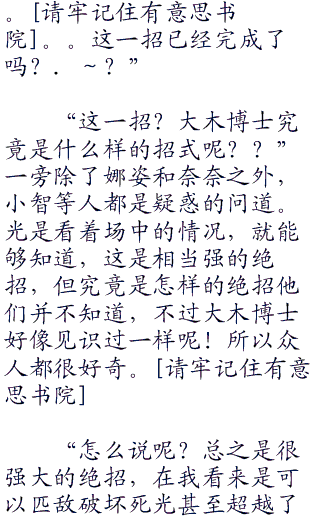 。[请牢记住有意思书
院]。。这一招已经完成了
吗？．～？”
“这一招？大木博士究
竟是什么样的招式呢？？”
一旁除了娜姿和奈奈之外，
小智等人都是疑惑的问道。
光是看着场中的情况，就能
够知道，这是相当强的绝
招，但究竟是怎样的绝招他
们并不知道，不过大木博士
好像见识过一样呢！所以众
人都很好奇。[请牢记住有意
思书院]
“怎么说呢？总之是很
强大的绝招，在我看来是可
以匹敌破坏死光甚至超越了